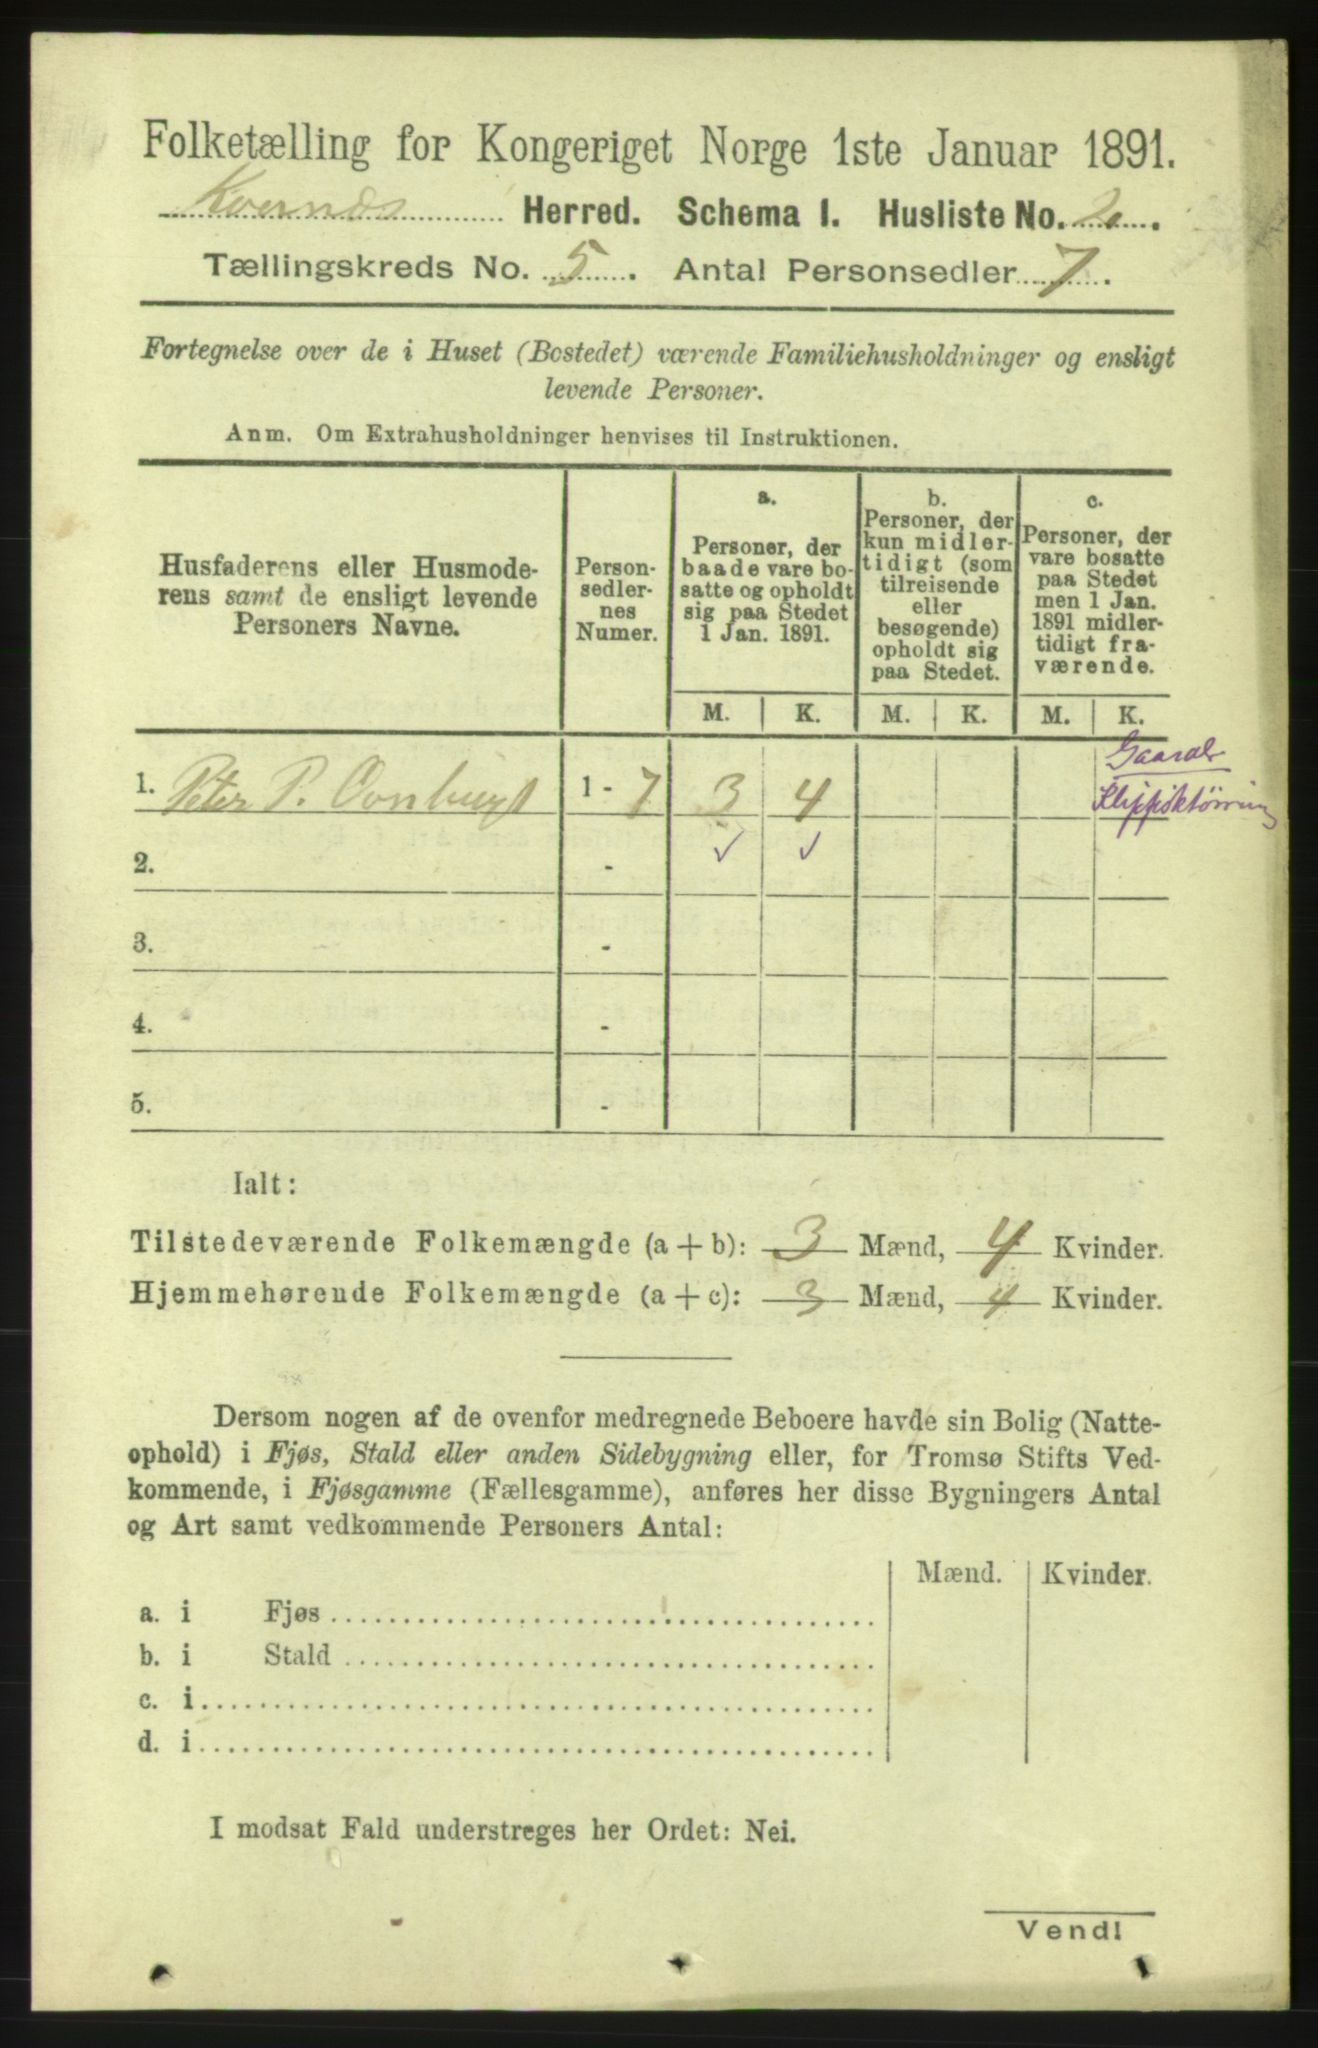 Folketælling for Kongeriget Norge 1ste Januar 1891.
Kvernæs Herred. Schema I. Husliste No. 2.
Tællingskreds No. 5. Antal Personsedler 7.
Fortegnelse over de i Huset (Bostedet) værende Familiehusholdninger og ensligt
levende Personer.
Anm. Om Extrahusholdninger henvises til Instruktionen.
Husfaderens eller Husmode-
rens samt de ensligt levende
Personers Navne.
Person-
sedler-
nes
Numer.
a.
Personer, der
baade vare bo-
satte og opholdt
sig paa Stedet
1 Jan. 1891.
b.
Personer, der
kun midler-
tidigt (som
tilreisende
eller
besøgende)
opholdt sig
paa Stedet.
c.
Personer, der
vare bosatte
paa Stedet
men 1 Jan.
1891 midler-
tidigt fra-
værende.
M. K. M. K. M. K.
1. Peter P. 1 - 7 3 4
Gaardb
Klippfisktørring
2. - ✓ ✓
3. -
4. -
5. -
Ialt:
Tilstedeværende Folkemængde (a + b): 3 Mænd, 4 Kvinder.
Hjemmehørende Folkemængde (a + c): 3 Mænd, 4 Kvinder.
Dersom nogen af de ovenfor medregnede Beboere havde sin Bolig (Natte-
ophold) i Fjøs, Stald eller anden Sidebygning eller, for Tromsø Stifts Ved-
kommende, i Fjøsgamme (Fællesgamme), anføres her disse Bygningers Antal
og Art samt vedkommende Personers Antal:
Mænd. Kvinder.
a. i Fjøs
b. i Stald
c. i
d. i
I modsat Fald understreges her Ordet: Nei.
Vend!